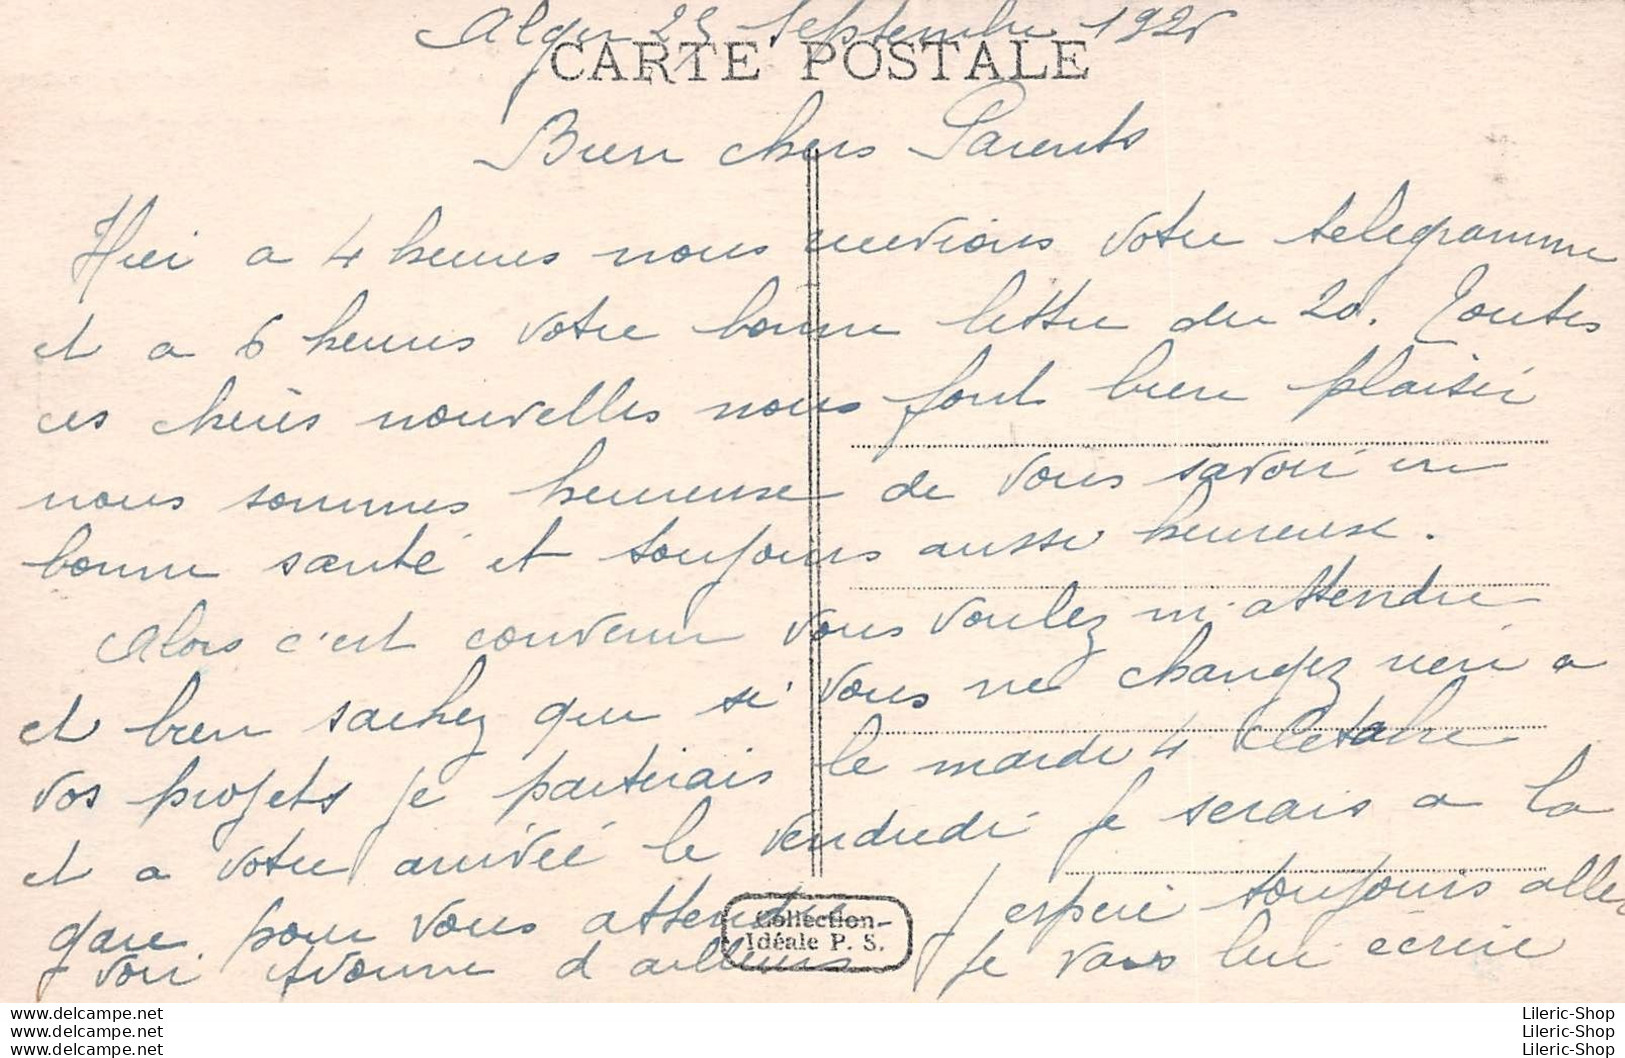 Alger 25 Septembre 192
CARTE POSTALE
Bien chers Parents
Hier a 4 heures nous recevions votre telegramme
et a 6 heures votre bonne lettre du 20. Toutes
ces cheres nouvelles nous font bien plaisir
nous sommes heureuse de vous savoir en
bonne santé et toujours aussi heureuse.
Alors c'est convenu vous voulez m'attendre
et bien sachez que si vous ne changez rien a
vos projets je partirais le mardi 4 Octobre
et a votre arrivée le vendredi je serais a la
gare pour vous attendre J espere toujours aller
voir Yvonne d ailleurs je vais lui ecrire
Collection-
Idéale P. S.
lileric@ymail.com Lileric-Shop
lileric@ymail.com Lileric-Shop
lileric@ymail.com Lileric-Shop